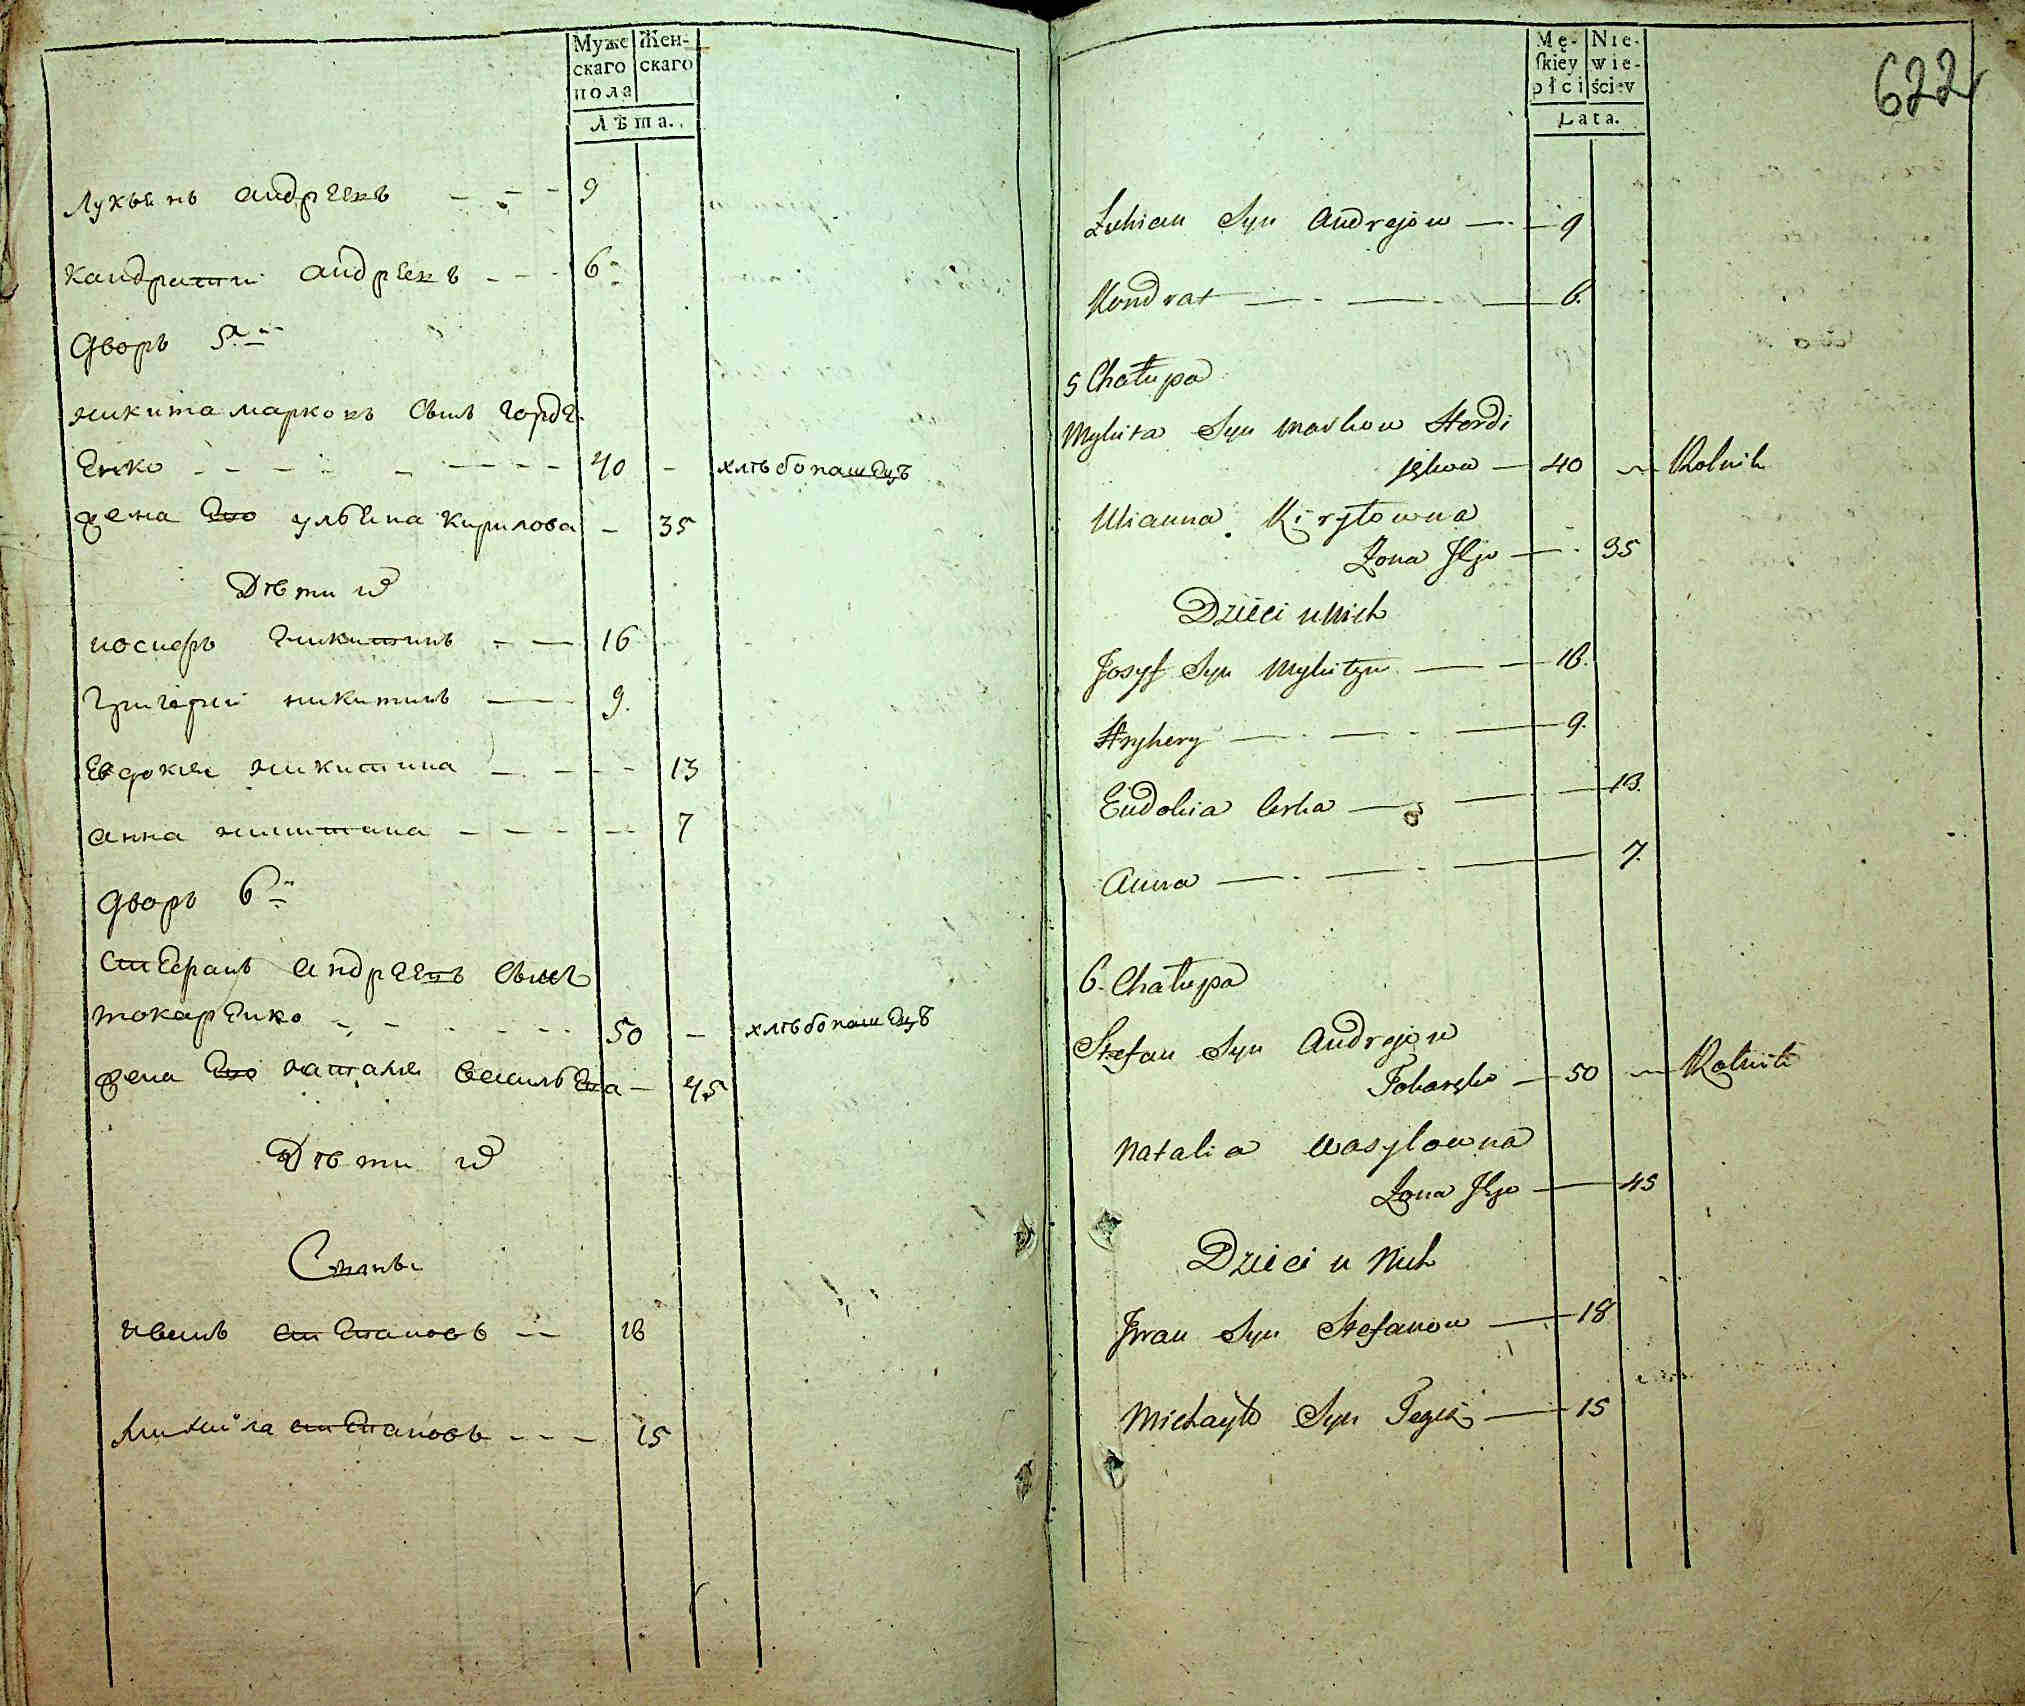 Муже
скаго
пола
Жен-
скаго
Лѣта.
Лукьянъ андреевъ - - - 9
кандратий андреевъ - - - 6
Дворъ 5й
никита марковъ сынъ горде
енко - - - - - - - - 40 - хлѣбопашецъ
жена Его ульяна кирилова - 35
Дѣти их
иосифъ никитинъ - - 16
григорий никитинъ - - 9.
Евдокия никитина - - - - 13
анна никитина - - - - - 7
Дворъ 6й
стефанъ андреевъ сынъ
токаренко - - - - - - 50 - хлѣбопашецъ
жена Его наталия васильева - 45
Дѣти их
Сыны
иванъ степановъ - - 18
михайла степановъ - - - 15
Mę-
skiey
płci
Nie-
wie-
ściey
Lata.
622
Łukian Syn Andrejow — - — 9
Kondrat — - — - — 6.
5 Chałupa
Mykita Syn Markow Hordi
jękow — 40 ~ Rolnik
Ulianna Kiryłowna
Żona Jego — - 35
Dzieci u Nich
Josyf Syn Mykityn — — 16.
Hryhery — - — - — 9.
Eudokia Corka — - — - — 13.
Anna — - — - — 7.
6. Chałupa
Stefan Syn Andrejow
Tokaręko — 50 ~ Rolnik
Natalia Wasylowna
Żona Jego — 45
Dzieci u Nich
Jwan Syn Stefanow — 18
Michayło Syn Tegoż — 15